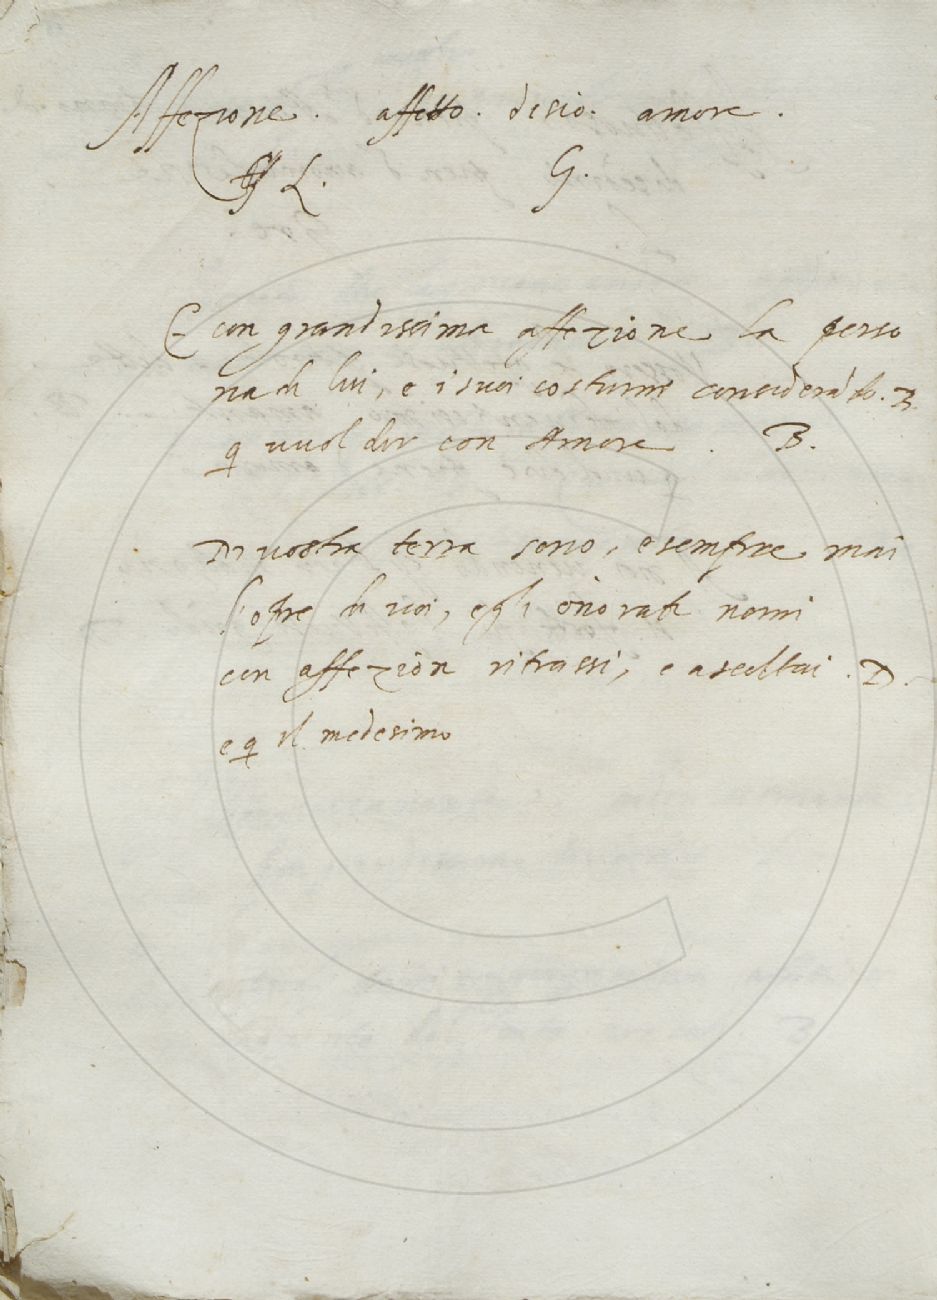 Affezione. affetto. disio. amore.
L. G.
E con grandissima affezione la perso
na di lui, e i suoi costumi considerādo. B.
q̄ vuol dir con Amore. B.
Di vostra terra sono, e sempre mai
l'opre di voi, e gli onorati nomi
con affezion ritrassi, e ascoltai. D.
e q̄ il medesimo